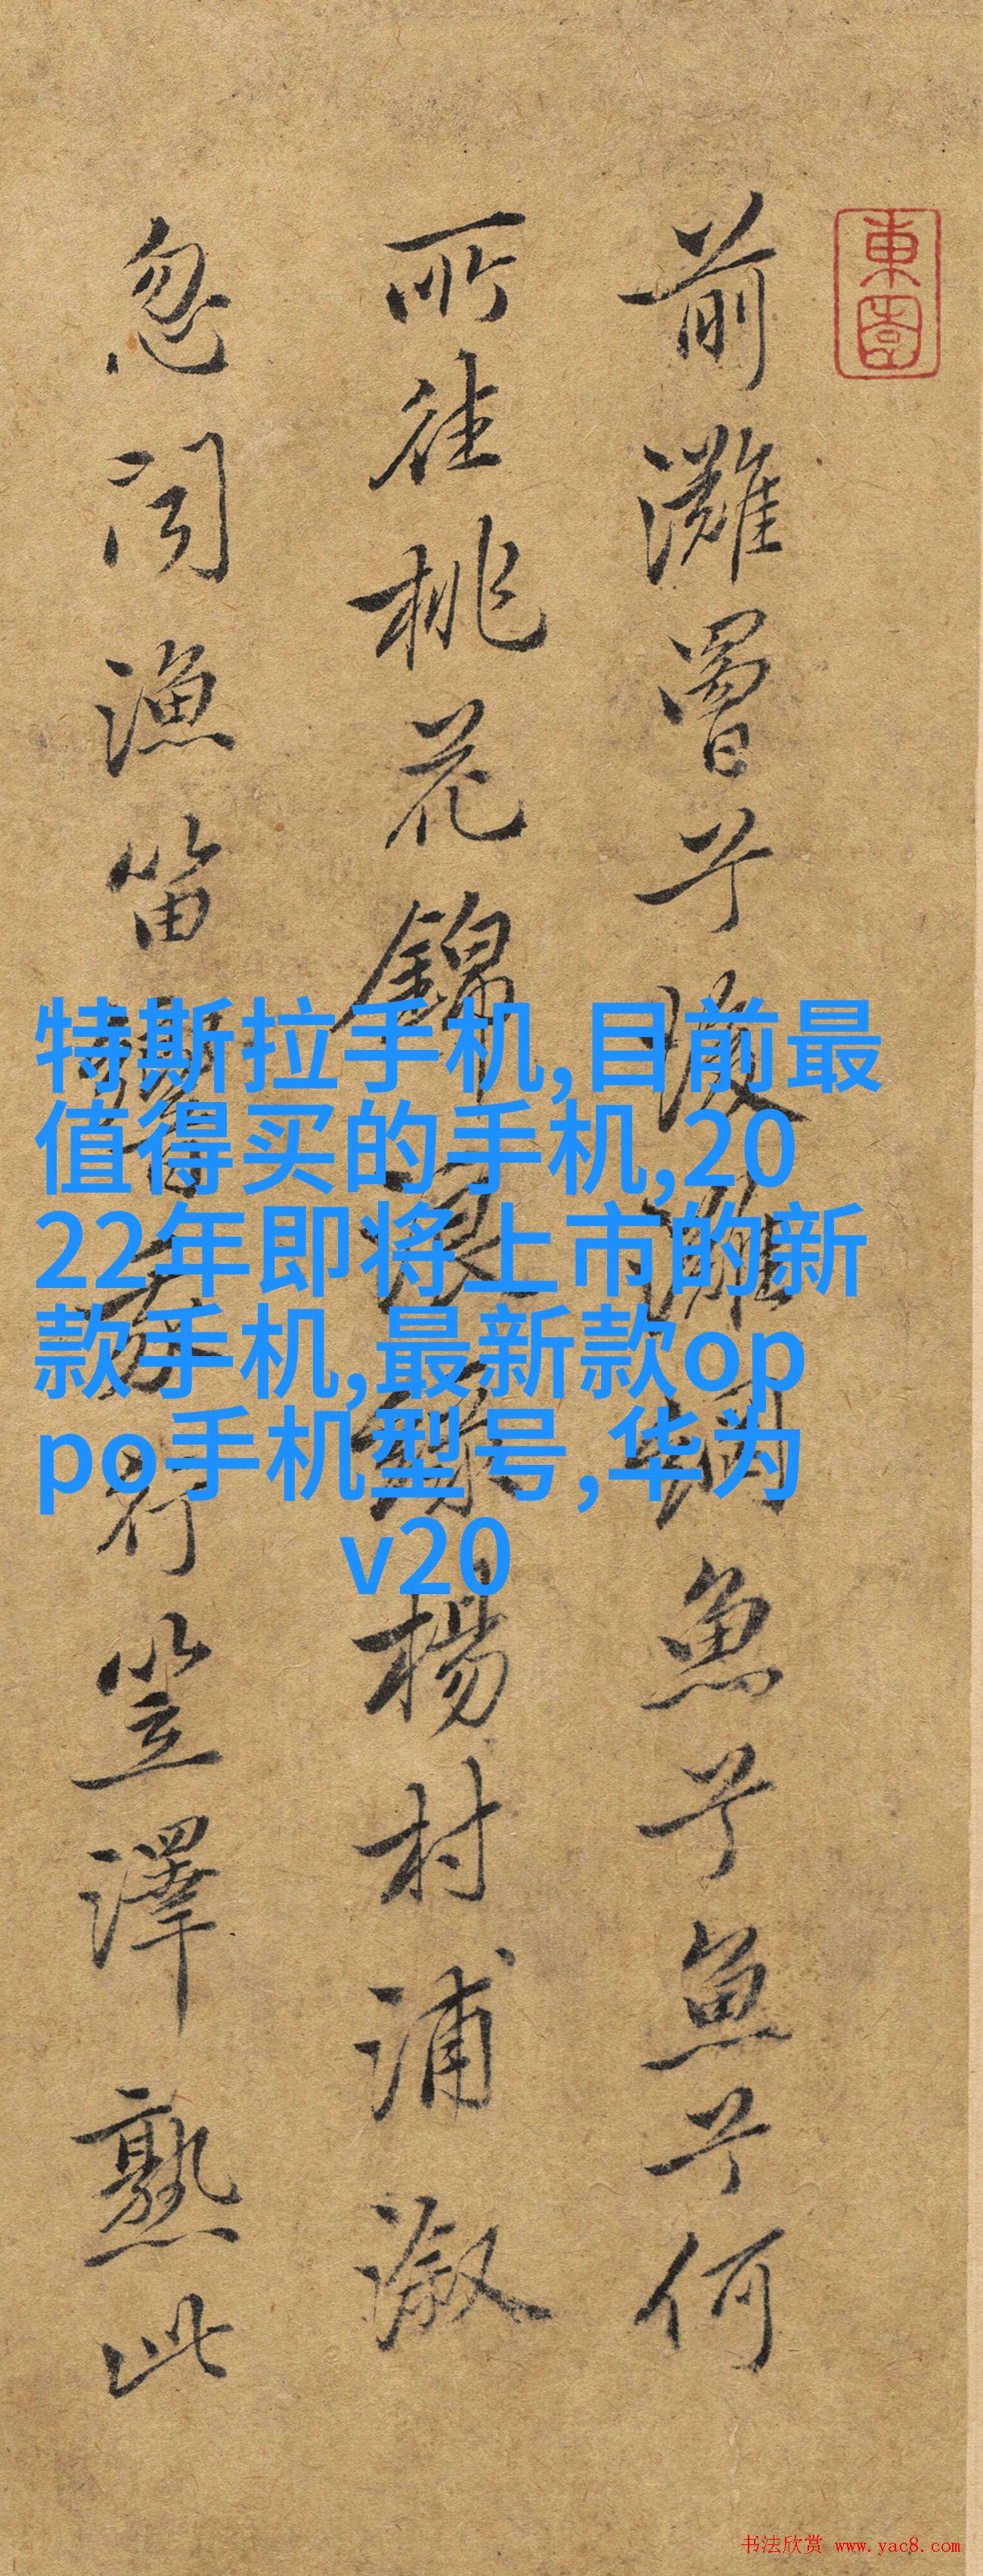 東園
前灘罾兮後灘網魚兮魚兮何
所往桃花錦浪綠楊村浦漵
忽聞漁笛響行笠澤熟此
特斯拉手机,目前最
值得买的手机,20
22年即将上市的新
款手机,最新款op
po手机型号,华为
v20
书法欣赏 www.yac8.com